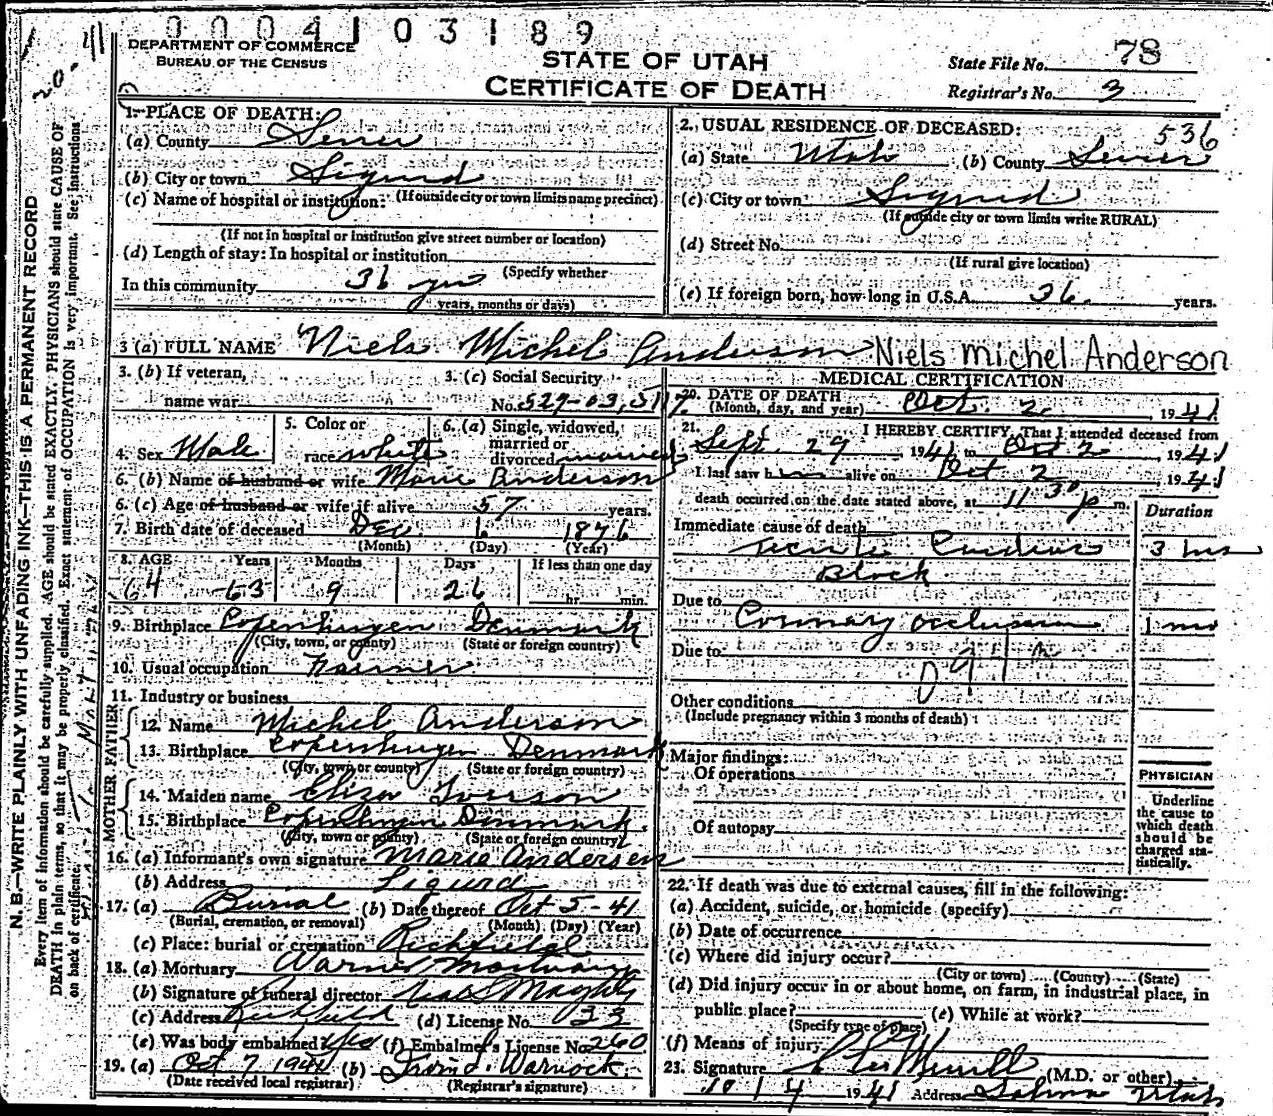 0004103189
DEPARTMENT OF COMMERCE
BUREAU OF THE CENSUS
STATE OF UTAH
CERTIFICATE OF DEATH
State File No. 78
Registrar's No. 3
N. B.—WRITE PLAINLY WITH UNFADING INK—THIS IS A PERMANENT RECORD
Every item of information should be carefully supplied. AGE should be stated EXACTLY. PHYSICIANS should state CAUSE OF
DEATH in plain terms, so that it may be properly classified. Exact statement of OCCUPATION is very important. See instructions
on back of certificate.
1. PLACE OF DEATH:
(a) County Sevier
(b) City or town Sigurd
(If outside city or town limits name precinct)
(c) Name of hospital or institution:
(If not in hospital or institution give street number or location)
(d) Length of stay: In hospital or institution
(Specify whether
In this community 36 yrs
years, months or days)
2. USUAL RESIDENCE OF DECEASED: 536
(a) State Utah (b) County Sevier
(c) City or town Sigurd
(If outside city or town limits write RURAL)
(d) Street No.
(If rural give location)
(e) If foreign born, how long in U.S.A. 36 years.
3 (a) FULL NAME Niels Michel Anderson Niels Michel Anderson
3. (b) If veteran,
name war
3. (c) Social Security
No. 529-03
4. Sex Male
5. Color or
race white
6. (a) Single, widowed,
married or
divorced married
6. (b) Name of husband or wife Marie Anderson
6. (c) Age of husband or wife if alive 57 years.
7. Birth date of deceased Dec 6 1876
(Month) (Day) (Year)
8. AGE Years Months Days If less than one day
64 63 9 26 hr. min.
9. Birthplace Copenhagen Denmark
(City, town, or county) (State or foreign country)
10. Usual occupation Farmer
11. Industry or business
FATHER
12. Name Michel Anderson
13. Birthplace Copenhagen Denmark
(City, town or county) (State or foreign country)
MOTHER
14. Maiden name Eliza Iverson
15. Birthplace Copenhagen Denmark
(City, town or county) (State or foreign country)
16. (a) Informant's own signature Marie Andersen
(b) Address Sigurd
17. (a) Burial (b) Date thereof Oct 5-41
(Burial, cremation, or removal) (Month) (Day) (Year)
(c) Place: burial or cremation Richfield
18. (a) Mortuary Warner Mortuary
(b) Signature of funeral director
(c) Address Richfield (d) License No. 33
(e) Was body embalmed? Yes (f) Embalmer's License No. 260
19. (a) Oct 7 1941 (b) Warnock
(Date received local registrar) (Registrar's signature)
MEDICAL CERTIFICATION
20. DATE OF DEATH
(Month, day, and year) Oct. 2 1941
21. I HEREBY CERTIFY, That I attended deceased from
Sept. 29 1941 to Oct 2 1941
I last saw him alive on Oct 2 1941
death occurred on the date stated above, at 11 30 p m.
Duration
Immediate cause of death
Cardiac 3 hrs
Block
Due to Coronary occlusion 1 mo
Due to
Other conditions
(Include pregnancy within 3 months of death)
Major findings:
Of operations
Of autopsy
PHYSICIAN
Underline
the cause to
which death
should be
charged sta-
tistically.
22. If death was due to external causes, fill in the following:
(a) Accident, suicide, or homicide (specify)
(b) Date of occurrence
(c) Where did injury occur?
(City or town) (County) (State)
(d) Did injury occur in or about home, on farm, in industrial place, in
public place? (e) While at work?
(Specify type of place)
(f) Means of injury
23. Signature (M.D. or other)
10/4 1941 Address Salina Utah